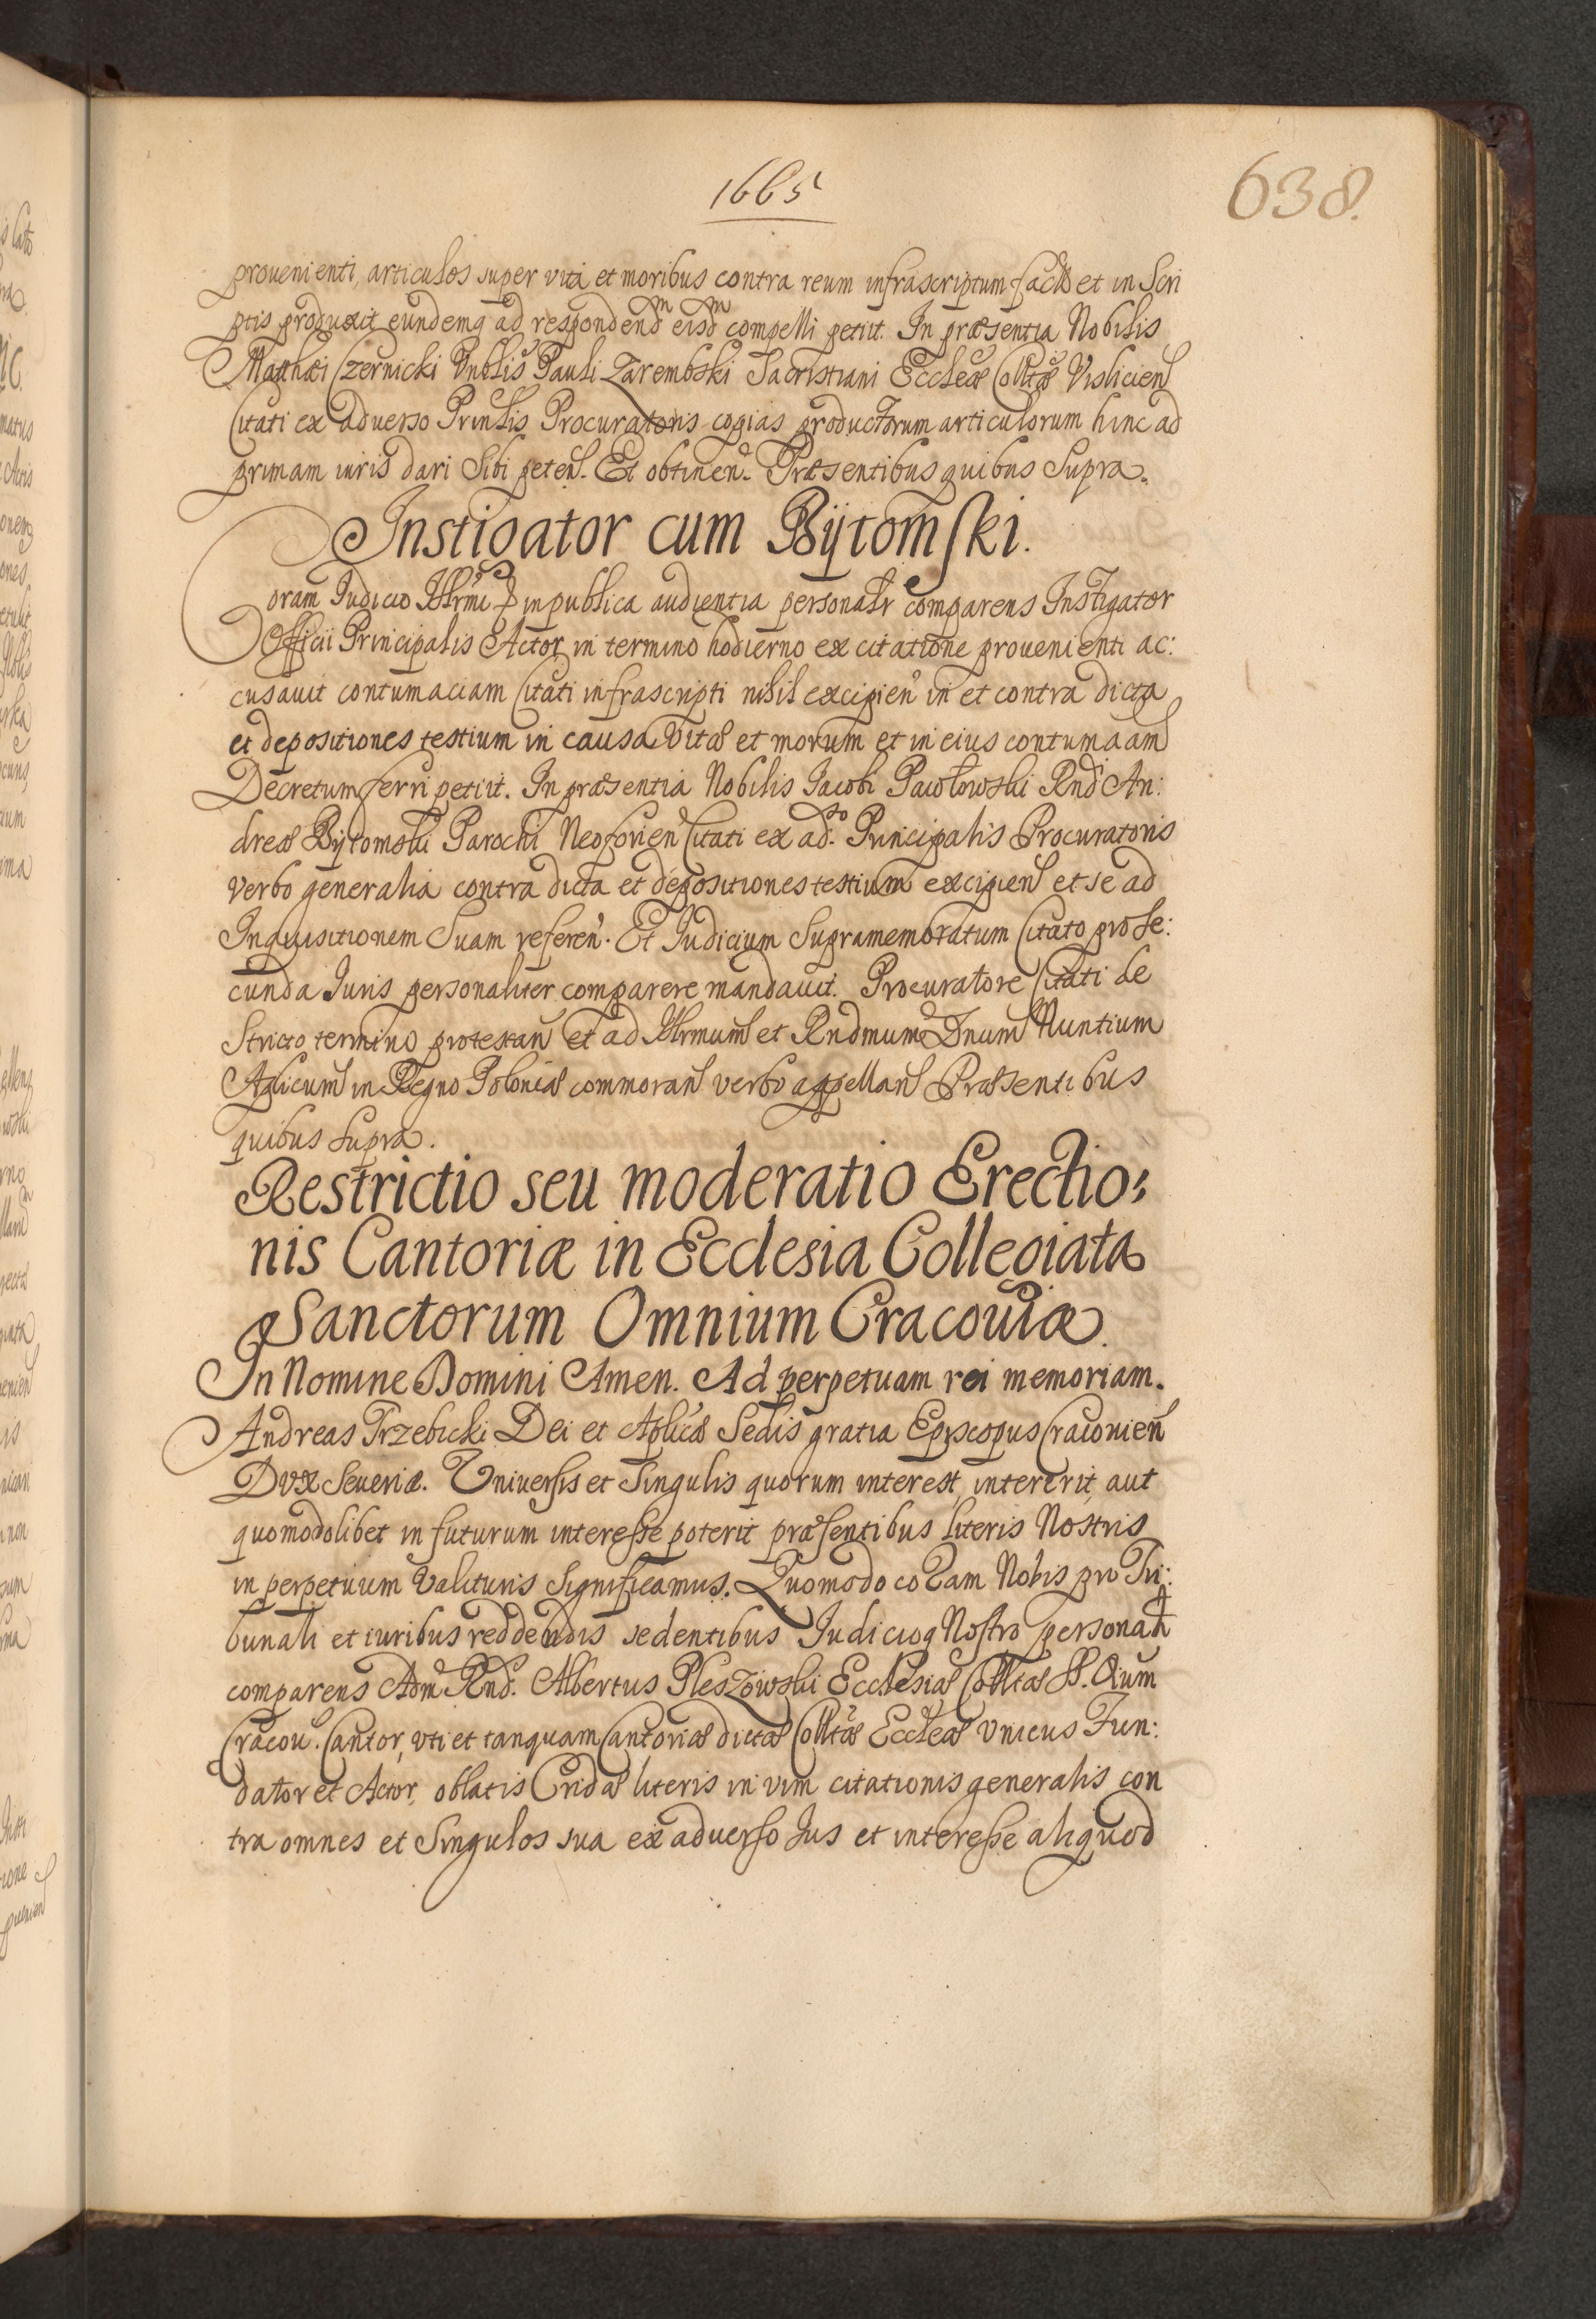 1665
638.
prouenienti, articulos super vita et moribus contra reum infrascriptum factos et in Scri
ptis produxit eundemq ad respondendm eisdm compelli petiit. In præsentia Nobilis
Matthæi Czernicki Vnblis Pauli Zarembski Sacristiani Eccleæ Colltæ Vislicien
Citati ex aduerso Prinlis Procuratoris copias productorum articulorum hinc ad
primam iuris dari Sibi peten. Et obtinen. Præsentibus quibus Supra.
Instigator cum Bÿtomski.
Coram Iudicio Illrmi in publica audientia personalr comparens Instigator
Officii Principalis Actor in termino hodierno ex citatione prouenienti ac:
cusauit contumaciam Citati infrascripti nihil excipien in et contra dicta
et depositiones testium in causa Vitæ et morum et in eius contumaam
Decretum ferri petiit. In præsentia Nobilis Iacobi Pawłowski Rndi An:
dreæ Bÿtomski Parochi Neoforien Citati ex ad.so Principalis Procuratoris
verbo generalia contra dicta et depositiones testium excipien et se ad
Inquisitionem Suam referen. Et Iudicium Supramemoratum Citato pro se:
cunda Iuris personaliter comparere mandauit. Procuratore Citati de
Stricto termino protestan et ad Illrmum et Rndmum Dnum Nuntium
Aplicum in Regno Poloniæ commoran verbo appellan Præsentibus
quibus Supra.
Restrictio seu moderatio Erectio:
nis Cantoriæ in Ecclesia Collegiata
Sanctorum Omnium Cracouiæ.
In Nomine Domini Amen. Ad perpetuam rei memoriam.
Andreas Trzebicki Dei et Aplicæ Sedis gratia Episcopus Cracouien
Dux Seueriæ. Vniuersis et Singulis quorum interest, intererit, aut
quomodolibet in futurum interesse poterit præsentibus literis Nostris
in perpetuum Valituris Significamus. Quomodo coram Nobis pro Tri:
bunali et iuribus reddendis sedentibus Iudicioq Nostro personalr
comparens Adm Rnd. Albertus Pleszowski Ecclesiæ Colltæ SS. Oium
Cracou. Cantor, vti et tanquam Cantoriæ dictæ Colltæ Eccleæ vnicus Fun:
dator et Actor, oblatis Cridæ literis in vim citationis generalis con
tra omnes et Singulos sua ex aduerso Ius et interesse aliquod